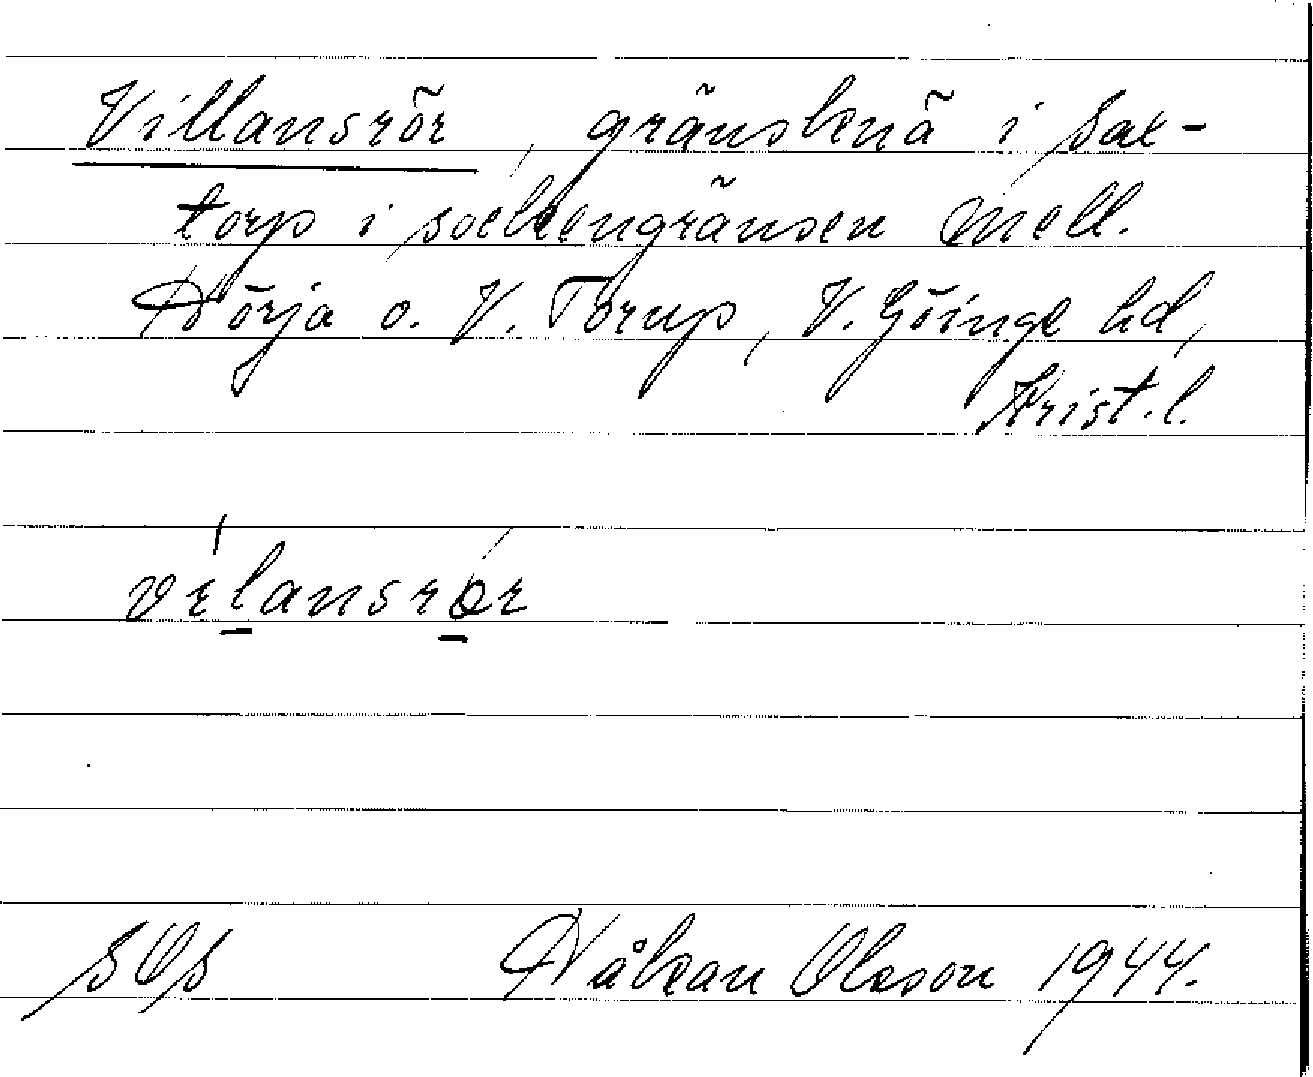 Villansrör, gränsknä i Sax-
torp i sockengränsen mell.
Hörja o. V. Torup, V. Göinge hd,
Krist. l.
vɛ́lansrǿr
SOS Håkan Olsson 1944.